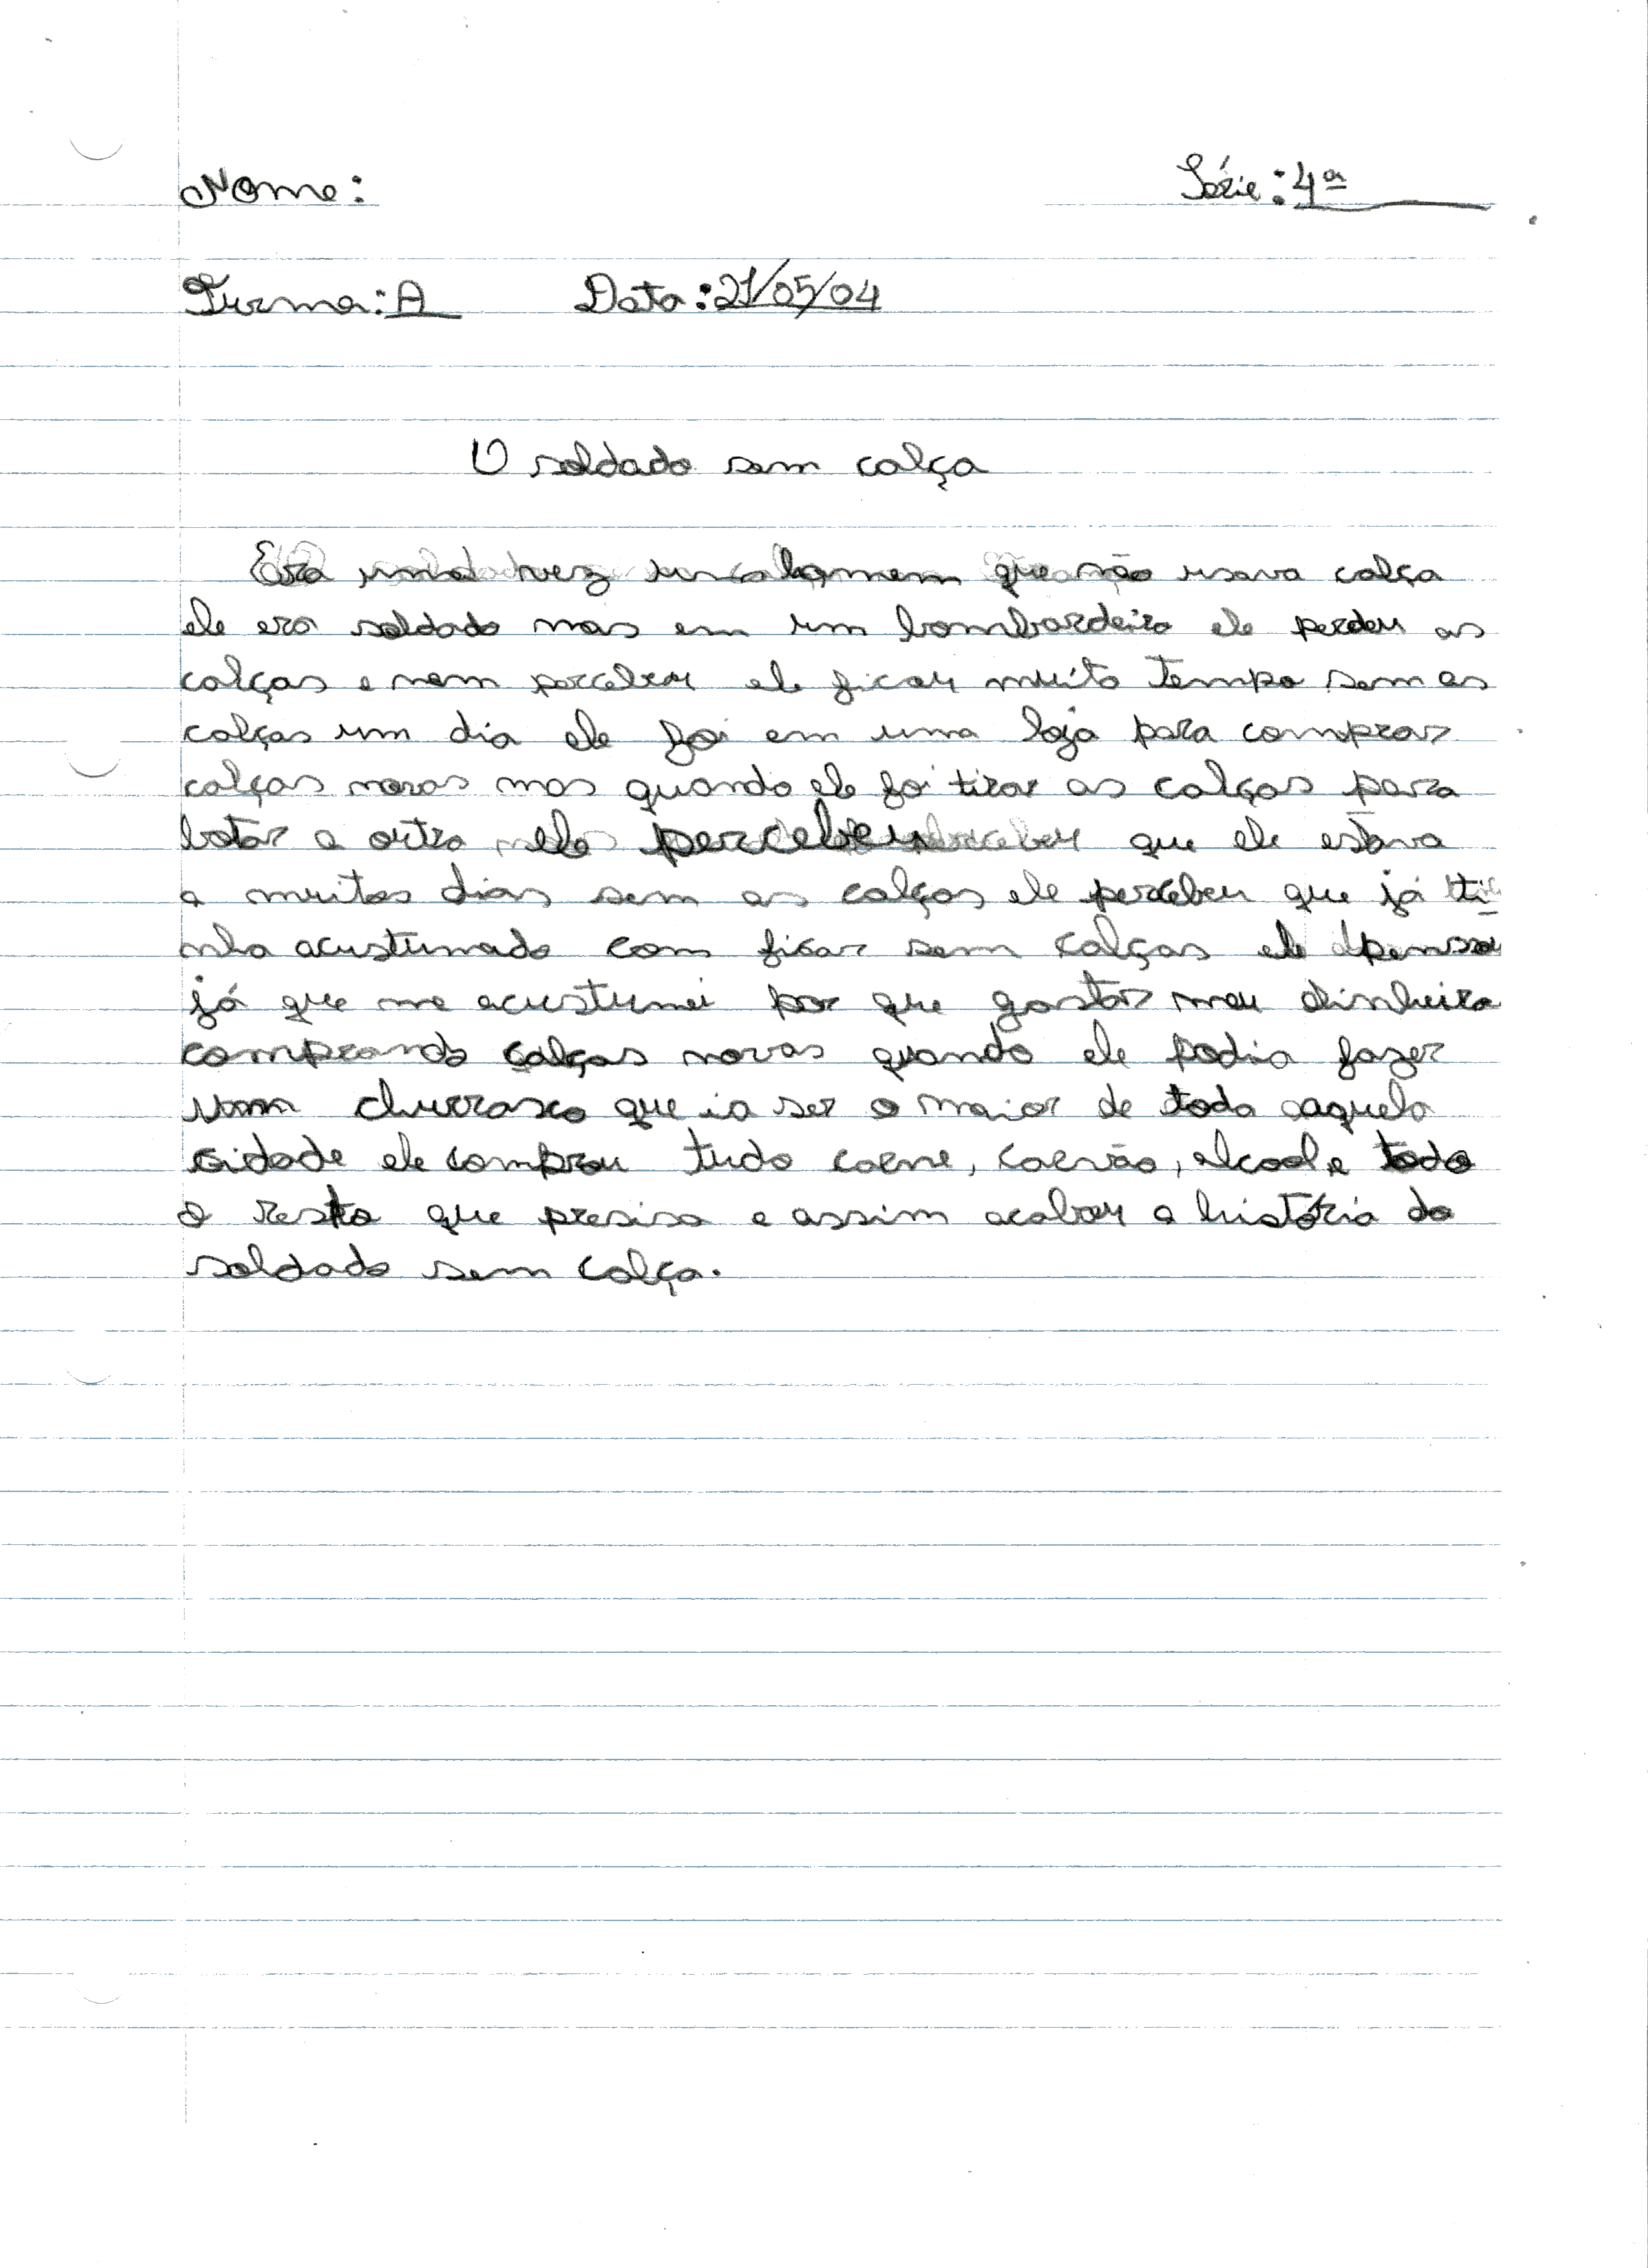 Nome: Série: 4ª
Turma: A Data: 21/05/04
O soldado sem calça
Era uma vez um homem que não usava calça
ele era soldado mas em um bombardeiro ele perdeu as
calças e nem percebeu ele ficou muito tempo sem as
calças um dia ele foi em uma loja para comprar
calças novas mas quando ele foi tirar as calças para
botar a outra ele percebeu que ele estava
a muitos dias sem as calças ele percebeu que já ti
nha acustumado com ficar sem calças ele pensou
já que me acustumei por que gastar meu dinheiro
comprando calças novas quando ele podia fazer
um churrasco que ia ser o maior de toda aquela
cidade ele comprou tudo carne, carvão, alcool e todo
o resto que presisa e assim acabou a história do
soldado sem calça.